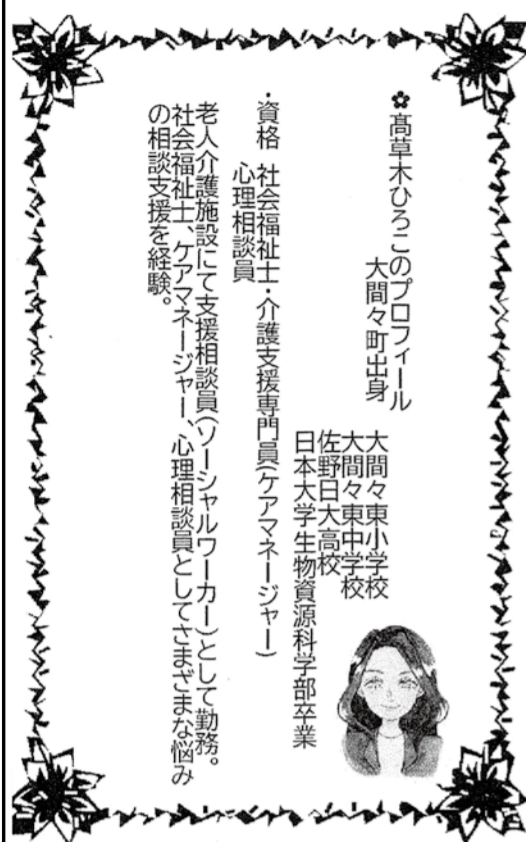 ✿髙草木ひろこのプロフィール
大間々町出身
大間々東小学校
大間々東中学校
佐野日大高校
日本大学生物資源科学部卒業
・資格 社会福祉士・介護支援専門員(ケアマネージャー)
心理相談員
老人介護施設にて支援相談員(ソーシャルワーカー)として勤務。
社会福祉士、ケアマネージャー、心理相談員としてさまざまな悩み
の相談支援を経験。